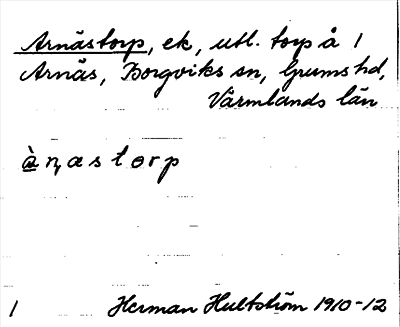 Arnästorp, ek, utl. torp å 1
Arnäs, Borgviks sn, Grums hd,
Värmlands län
àn̦æstorp
1 Herman Hultström 1910-12